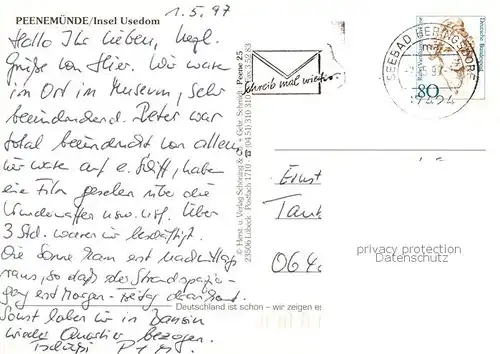 PEENEMÜNDE/Insel Usedom
1.5.97
Hallo Ihr Lieben, herzl.
Grüße von hier. Wir waren
im Ort im Museum, sehr
beeindruckend. Peter war
total beeindruckt von allem,
wir waren auf e. Schiff, haben
ein Film gesehen über die
Wunderwaffen usw. usf. Über
3 Std. waren wir beschäftigt.
Die Sonne kam erst nachmittags
raus, so daß der Strandspazier-
gang erst Morgen - Freitag dran kommt.
Sonst haben wir in Bansin
wieder Quartier bezogen.
Tschüßi P + M.
© Herst. u. Verlag Schöning & Co + Gebr. Schmidt
23506 Lübeck Postfach 1710
Peene 25
Deutschland ist schön – wir zeigen es
Schreib mal wieder
SEEBAD HERINGSDORF
97
17424
80
Deutsche Bundespost
Ernst
Tank
06
privacy protection
Datenschutz